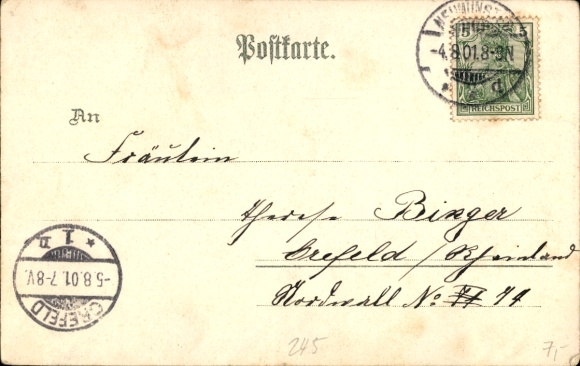 Postkarte.
5 5
REICHSPOST
NEUMÜNST
-4.8.01.8-9N
An
Fräulein
Therese Binger
Crefeld / Rheinland
Nordwall No 74
CREFELD
-5.8.01.7-8V.
* 1 D
245
7,-